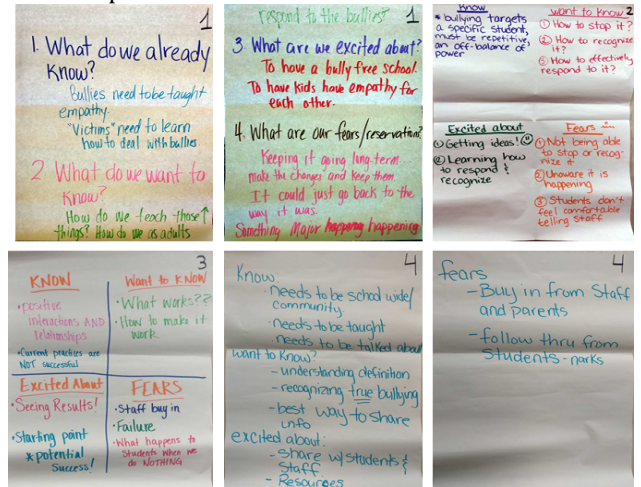 1
1. What do we already
Know?
Bullies need to be taught
empathy.
"Victims" need to learn
how to deal with bullies
2. What do we want to
Know?
How do we teach those
things? How do we as adults
respond to the bullies?
1
3. What are we excited about?
To have a bully free school.
To have kids have empathy for
each other.
4. What are our fears/reservation?
Keeping it going long-term
make the changes and keep them
It could just go back to the
way it was.
Something Major happening
2
Know
* bullying targets
a specific student,
must be repetitive,
an off-balance of
power
want to know
① How to stop it?
② How to recognize
it?
③ How to effectively
respond to it?
Excited about
① Getting ideas!
② Learning how
to respond &
recognize
Fears
① Not being able
to stop or recog-
nize it
② Unaware it is
happening
③ Students don't
feel comfortable
telling staff
3
KNOW
• positive
interactions AND
relationships
• Current practices are
NOT successful
Want to KNOW
• What works??
• How to make it
work
Excited About
• Seeing Results!
• Starting point
* potential
success!
FEARS
• Staff buy in
• Failure
• What happens to
students when we
do NOTHING
4
Know:
• needs to be school wide/
community
• needs to be taught
• needs to be talked about
want to Know?
- understanding definition
- recognizing true bullying
- best way to share
info
excited about:
- share w/ students &
Staff
- Resources
4
fears
- Buy in from Staff
and parents
- follow thru from
Students - narks